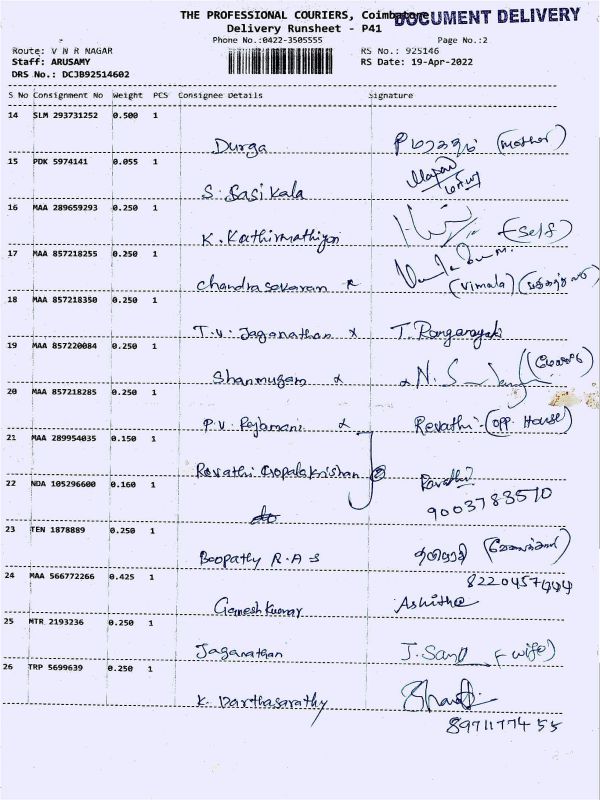 THE PROFESSIONAL COURIERS, Coimbatore
DOCUMENT DELIVERY
Delivery Runsheet - P41
Phone No.:0422-3505555
Page No.:2
Route: V N R NAGAR
RS No.: 925146
Staff: ARUSAMY
RS Date: 19-Apr-2022
DRS No.: DCJB92514602
S No Consignment No Weight PCS Consignee Details Signature
14 SLM 293731252 0.500 1
Durga (mother)
15 PDK 5974141 0.055 1
S. Sasikala
16 MAA 289659293 0.250 1
K. Kathirmathiyon (self)
17 MAA 857218255 0.250 1
Chandrasekaran R (Vimala)
18 MAA 857218350 0.250 1
T.V. Jaganathan x T. Ranganayaki
19 MAA 857220084 0.250 1
Shanmugam
20 MAA 857218285 0.250 1
P.V. Rejamani Revathi (opp. House)
21 MAA 289954035 0.150 1
Revathi Gopalakrishan Revathi
22 NDA 105296600 0.160 1
9003783510
do
23 TEN 1878889 0.250 1
Boopathy R.A S
24 MAA 566772266 0.425 1
Ganesh Kumar
25 MTR 2193236 0.250 1
Jaganathan (wife)
26 TRP 5699639 0.250 1
K. Parthasarathy